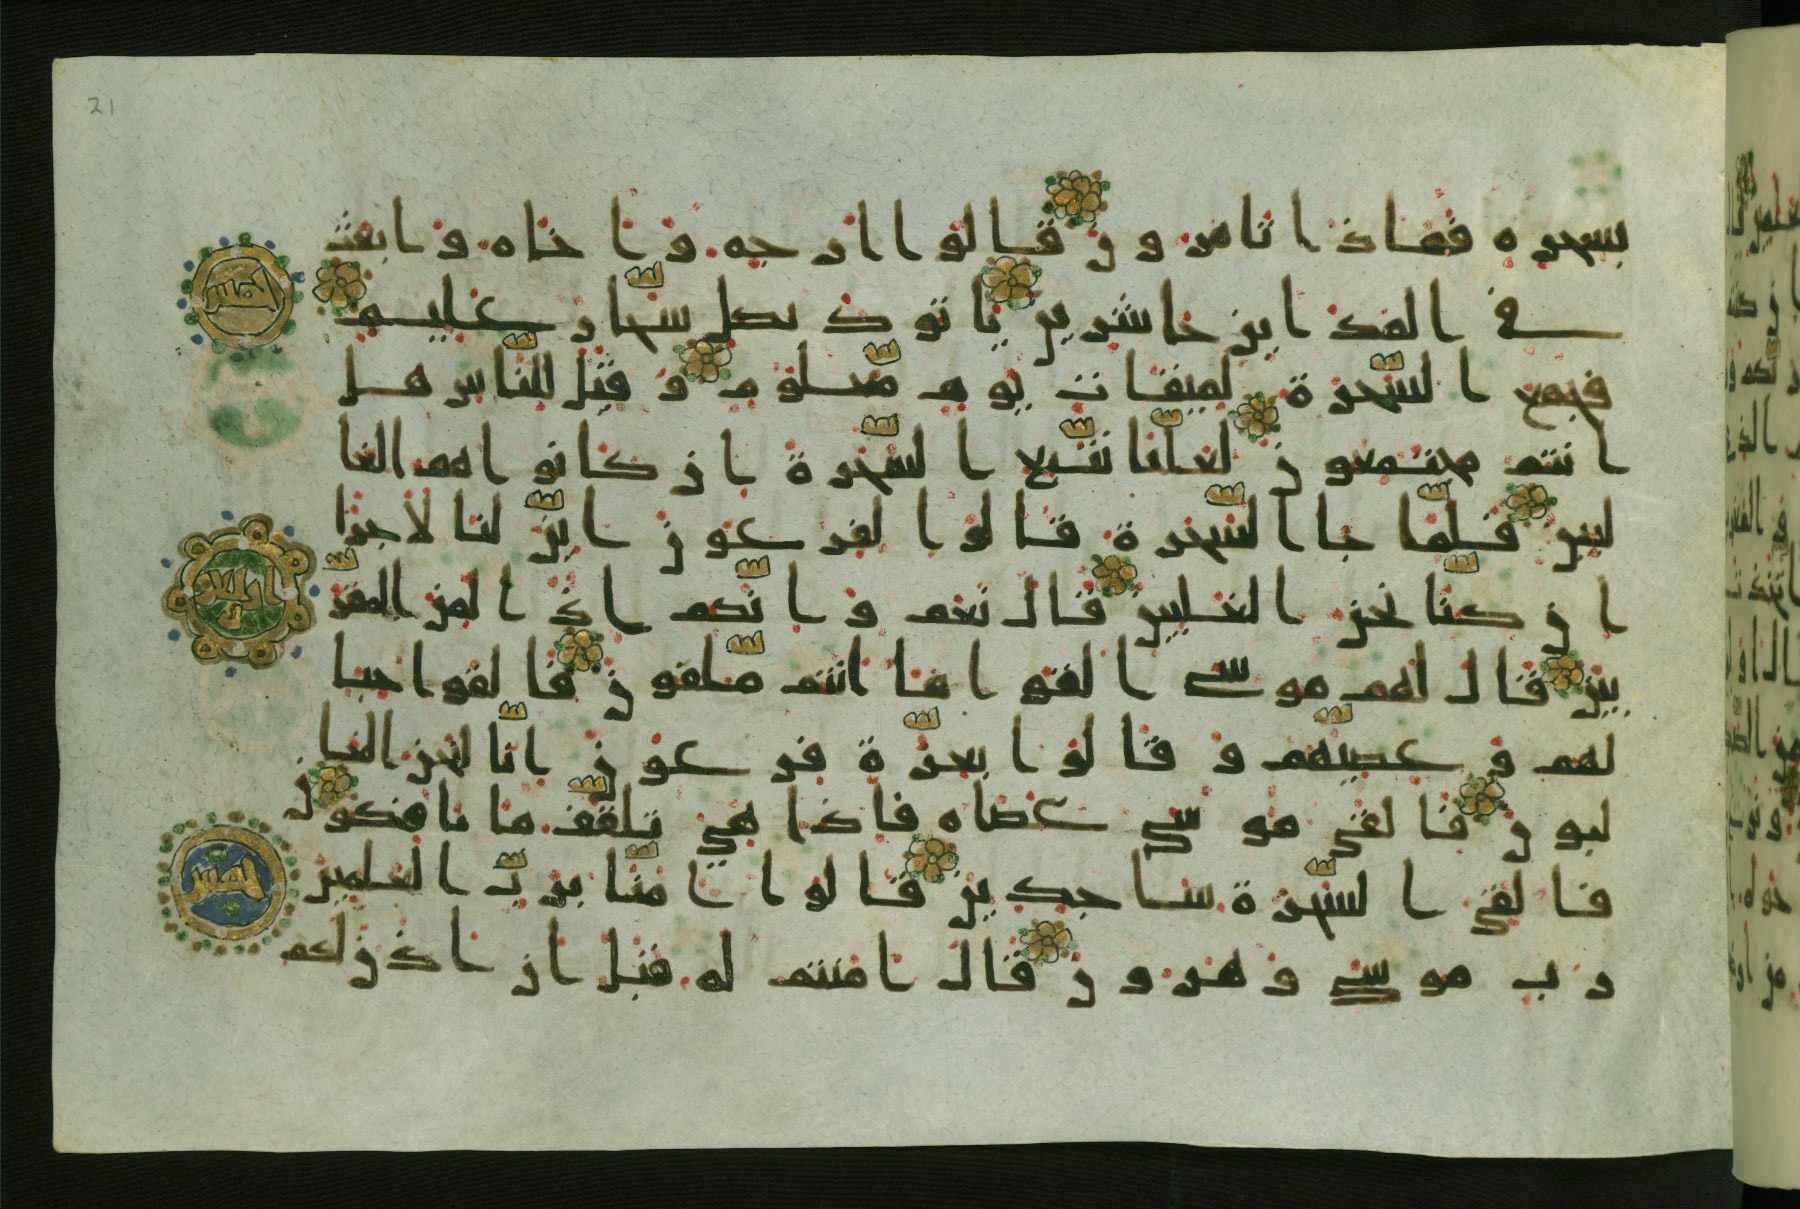 بسحره فماذا تامرون قالوا ارجه واخاه وابعث
في المداين حاشرين ياتوك بكل سحّار عليم
فجمع السّحرة لميقات يوم مّعلوم وقيل للنّاس هل
انتم مجتمعون لعلّنا نتّبع السّحرة ان كانوا هم الغا
لبين فلمّا جا السّحرة قالوا لفرعون اينّ لنا لاجرا
ان كنّا نحن الغلبين قال نعم وانّكم اذا لمن المقر
بين قال لهم موسى القوا ما انتم مّلقون فالقوا حبا
لهم وعصيّهم وقالوا بعزّة فرعون انّا لنحن الغـ
لبون فالقى موسى عصاه فاذا هي تلقّف ما يافكون
فالقي السّحرة ساجدين قالوا امنّا بربّ العلمين
رب موسى وهرون قال امنتم له قبل ان اذن لكم
21